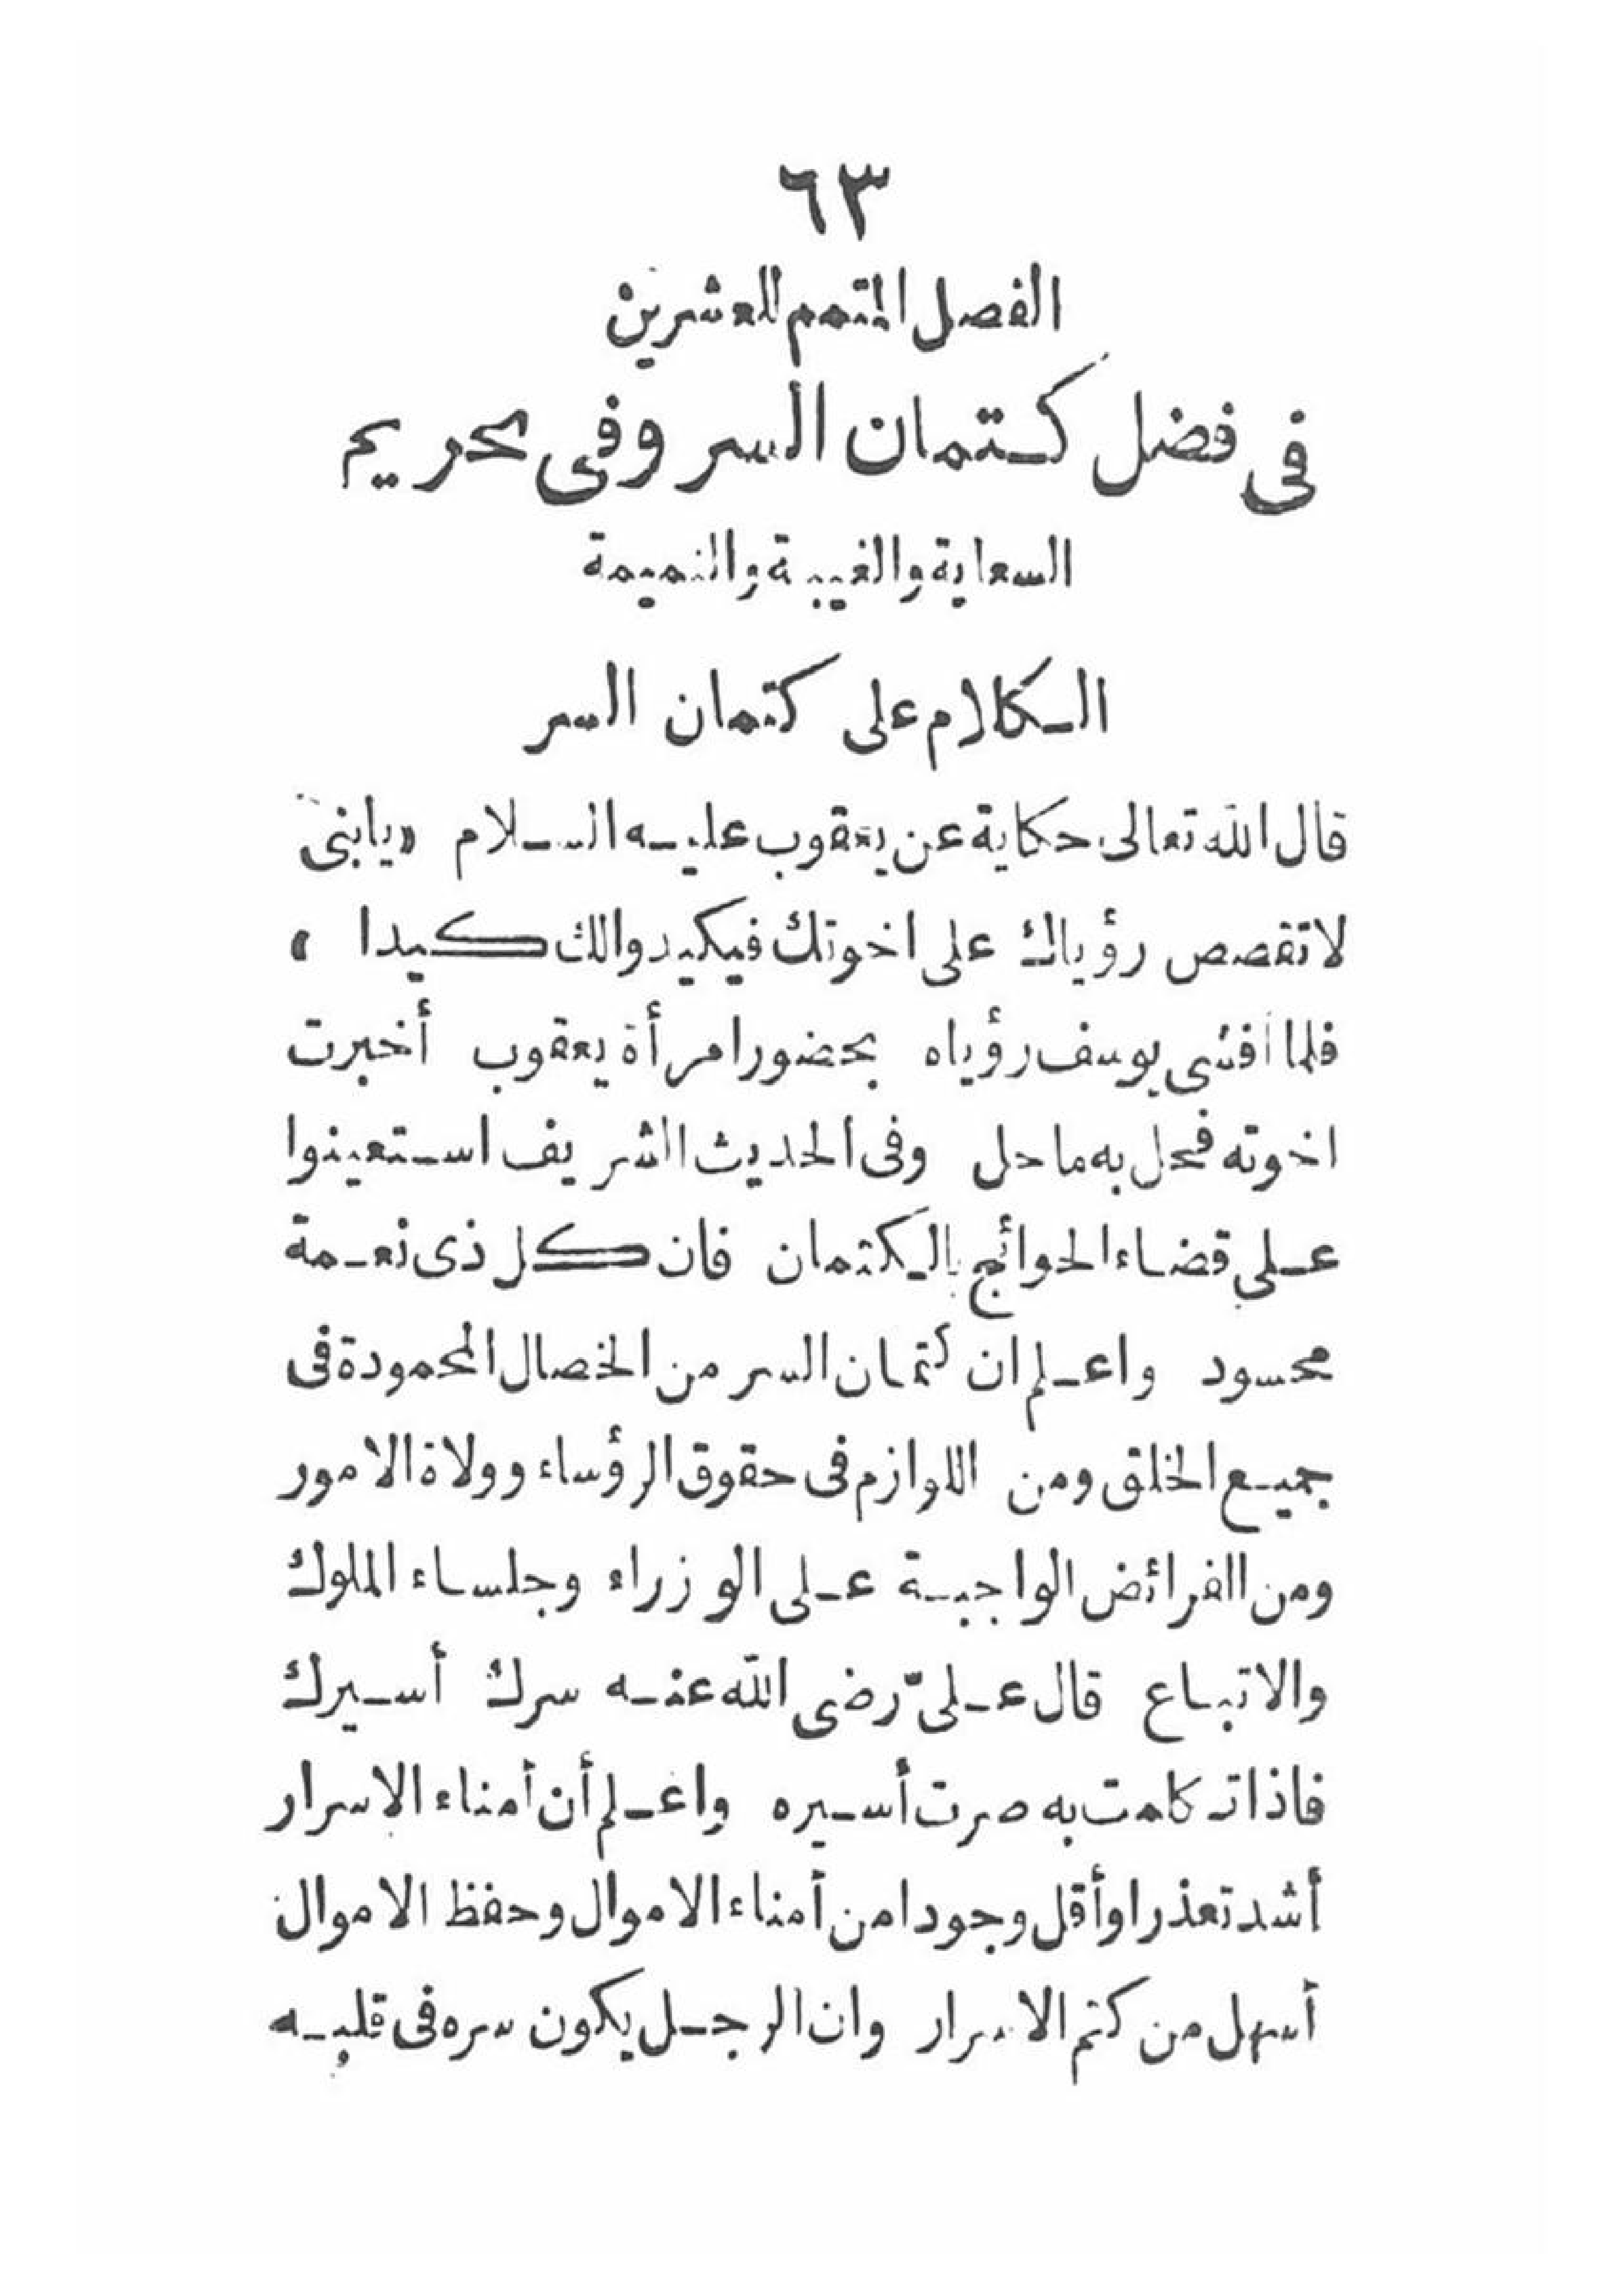 ٦٣
الفصل المتمم للعشرين
فى فضل كتمان السر وفى تحريم
السعاية والغيبة والنميمة
الكلام على كتمان السر
قال الله تعالى حكاية عن يعقوب عليه السلام «يابنىّ
لا تقصص رؤياك على اخوتك فيكيدوا لك كيدا»
فلما أفشى يوسف رؤياه بحضور امرأة يعقوب أخبرت
اخوته فحل به ما حل وفى الحديث الشريف استعينوا
على قضاء الحوائج بالكتمان فان كل ذى نعمة
محسود واعلم ان كتمان السر من الخصال المحمودة فى
جميع الخلق ومن اللوازم فى حقوق الرؤساء وولاة الامور
ومن الفرائض الواجبة على الوزراء وجلساء الملوك
والاتباع قال علىّ رضى الله عنه سرك أسيرك
فاذا تكلمت به صرت أسيره واعلم أن أمناء الاسرار
أشد تعذرا وأقل وجودا من أمناء الاموال وحفظ الاموال
أسهل من كتم الاسرار وان الرجل يكون سره فى قلبه